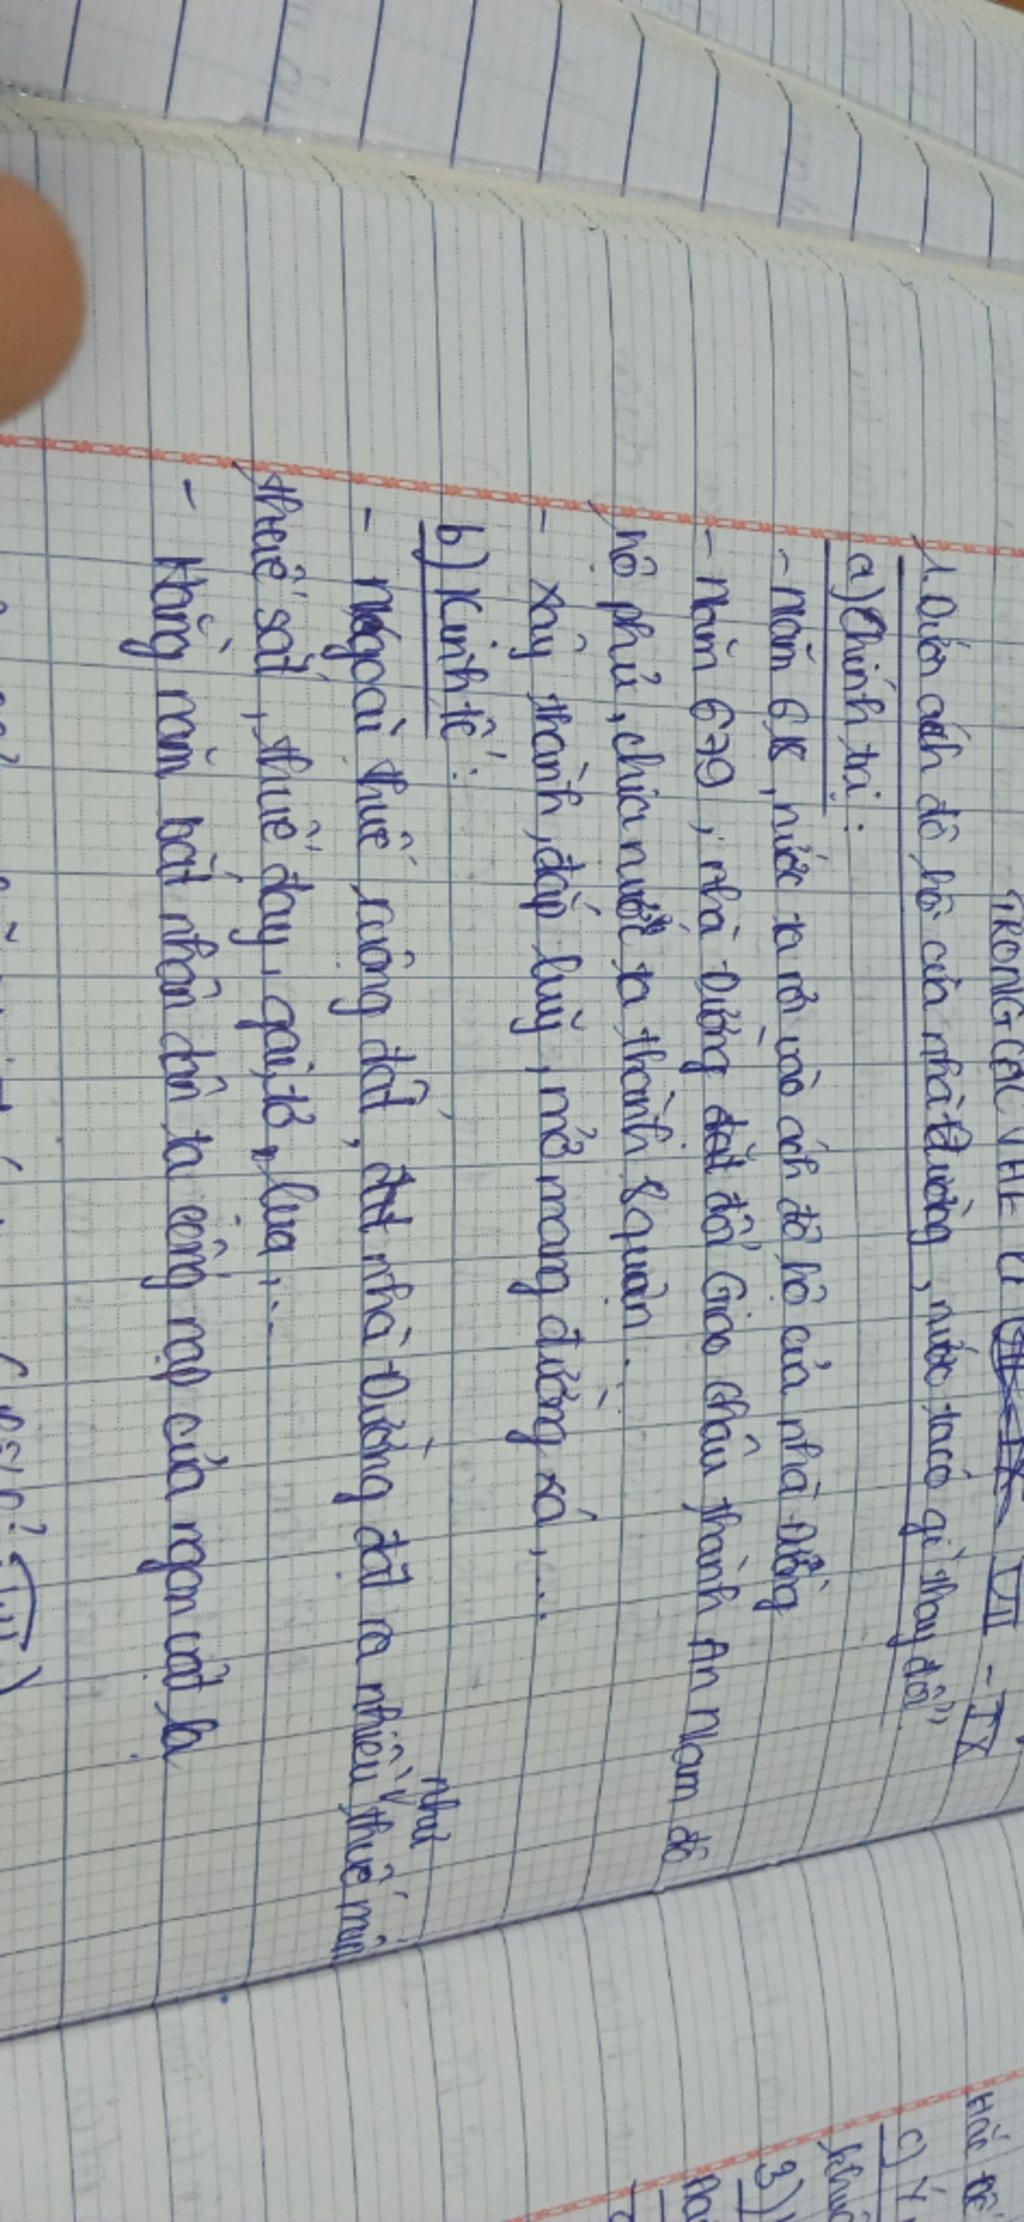 TRONG CÁC THẾ KỈ VII - IX
1. Dưới ách đô hộ của nhà Đường, nước ta có gì thay đổi?
a) Chính trị:
- Năm 618, nước ta rơi vào ách đô hộ của nhà Đường
- Năm 679, nhà Đường đổi Giao Châu thành An Nam đô
hộ phủ, chia nước ta thành 8 quận.
- Xây thành, đắp luỹ, mở mang đường xá,...
b) Kinh tế:
- Ngoài thuế ruộng đất, nhà Đường đặt ra nhiều thuế như
thuế sắt, thuế đay, gai, tơ, lụa,...
- Hằng năm bắt nhân dân ta cống nạp của ngon vật lạ
c) Ý
3)